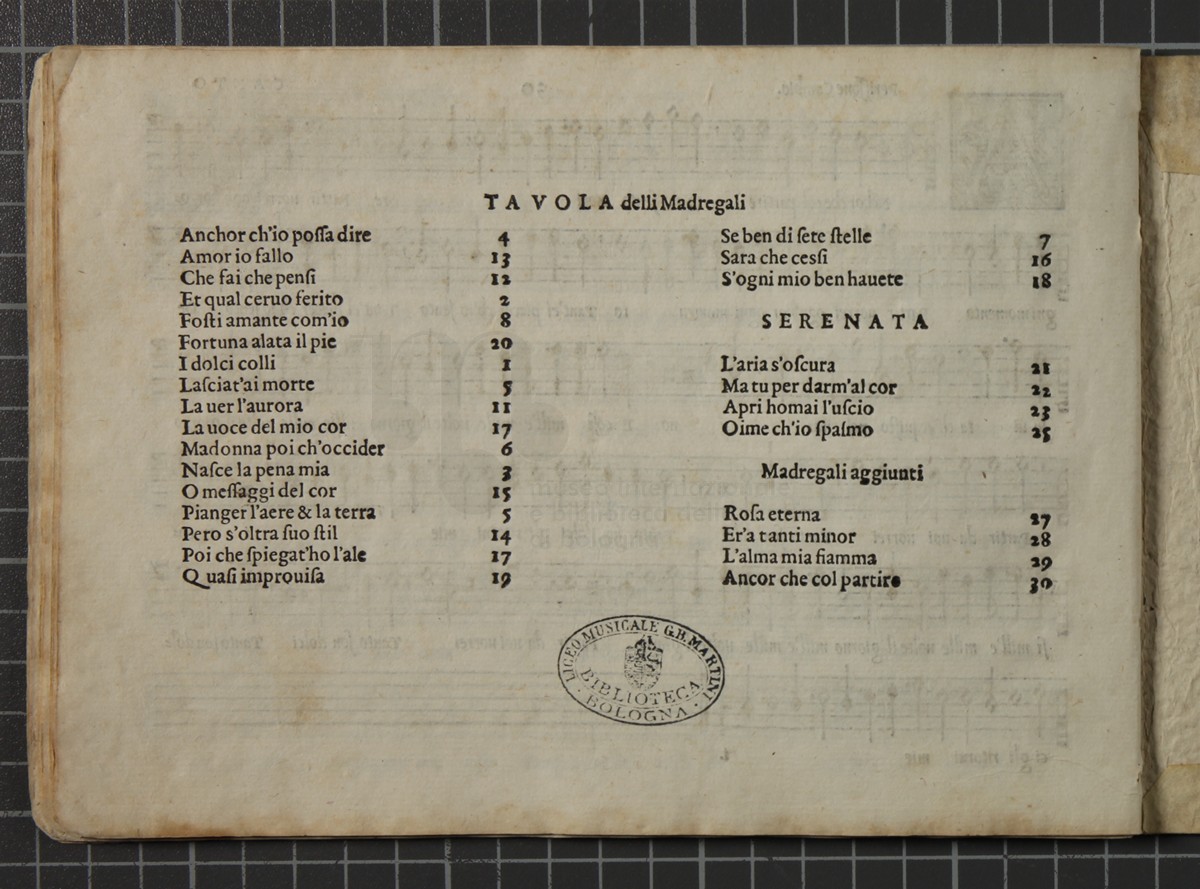 TAVOLA delli Madregali
Anchor ch'io poſſa dire 4
Amor io fallo 13
Che fai che penſi 12
Et qual ceruo ferito 2
Foſti amante com'io 8
Fortuna alata il pie 20
I dolci colli 1
Laſciat'ai morte 5
La uer l'aurora 11
La uoce del mio cor 17
Madonna poi ch'occider 6
Naſce la pena mia 3
O meſſaggi del cor 15
Pianger l'aere & la terra 5
Pero s'oltra ſuo ſtil 14
Poi che ſpiegat'ho l'ale 17
Quaſi improuiſa 19
Se ben di ſete ſtelle 7
Sara che ceſſi 16
S'ogni mio ben hauete 18
SERENATA
L'aria s'oſcura 21
Ma tu per darm'al cor 22
Apri homai l'uſcio 23
Oime ch'io ſpaſmo 25
Madregali aggiunti
Roſa eterna 27
Er'a tanti minor 28
L'alma mia fiamma 29
Ancor che col partire 30
LICEO MUSICALE G.B. MARTINI
BIBLIOTECA
BOLOGNA